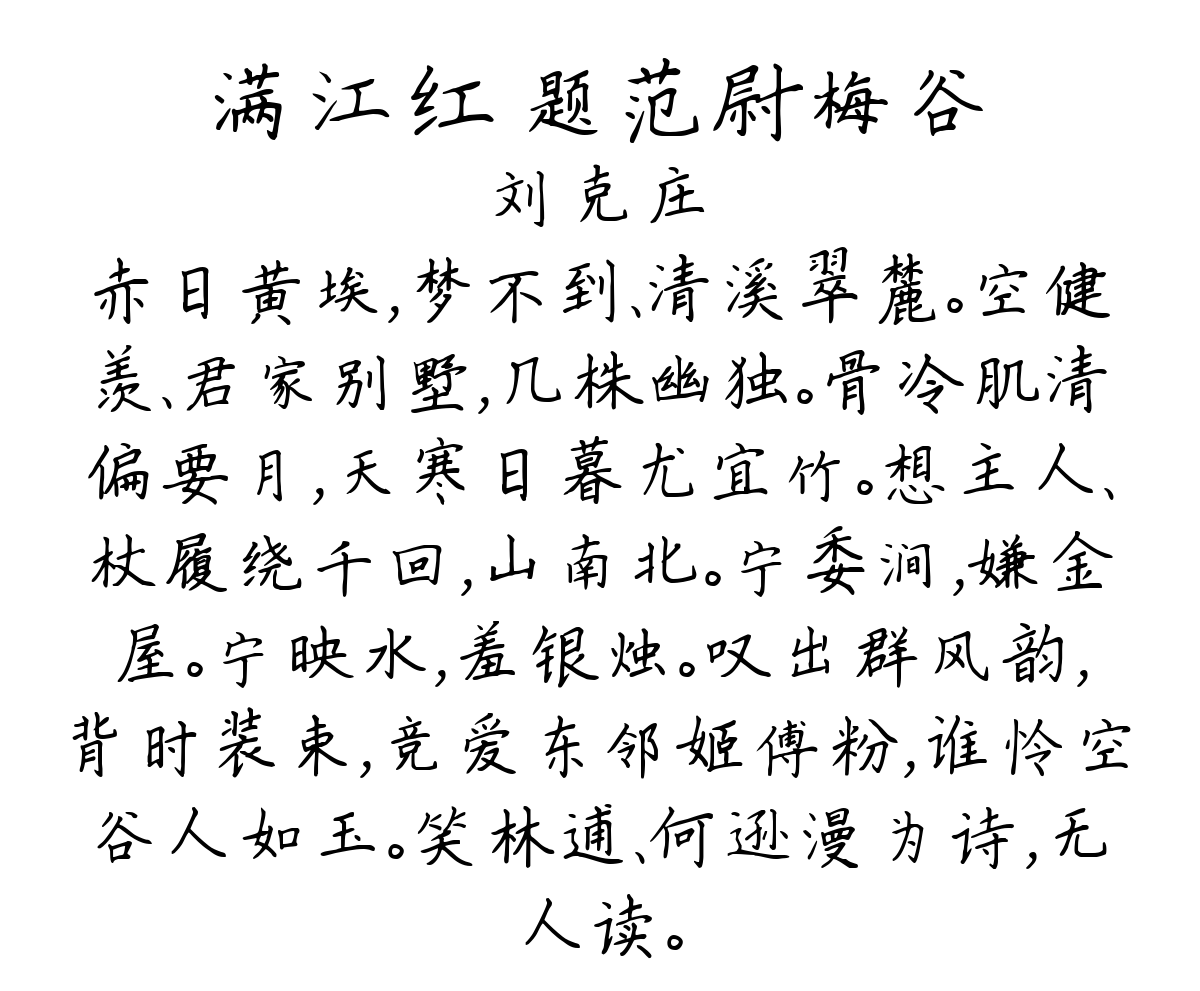 满江红 题范尉梅谷
刘克庄
赤日黄埃,梦不到、清溪翠麓。空健
羡、君家别墅,几株幽独。骨冷肌清
偏要月,天寒日暮尤宜竹。想主人、
杖履绕千回,山南北。宁委涧,嫌金
屋。宁映水,羞银烛。叹出群风韵,
背时装束,竞爱东邻姬傅粉,谁怜空
谷人如玉。笑林逋、何逊漫为诗,无
人读。